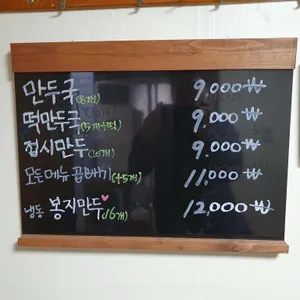 만두국(8개) 9,000₩
떡만두국(5개+떡) 9,000₩
접시만두(10개) 9,000₩
모든메뉴 곱빼기(+5개) 11,000₩
냉동 봉지만두(16개) 12,000₩